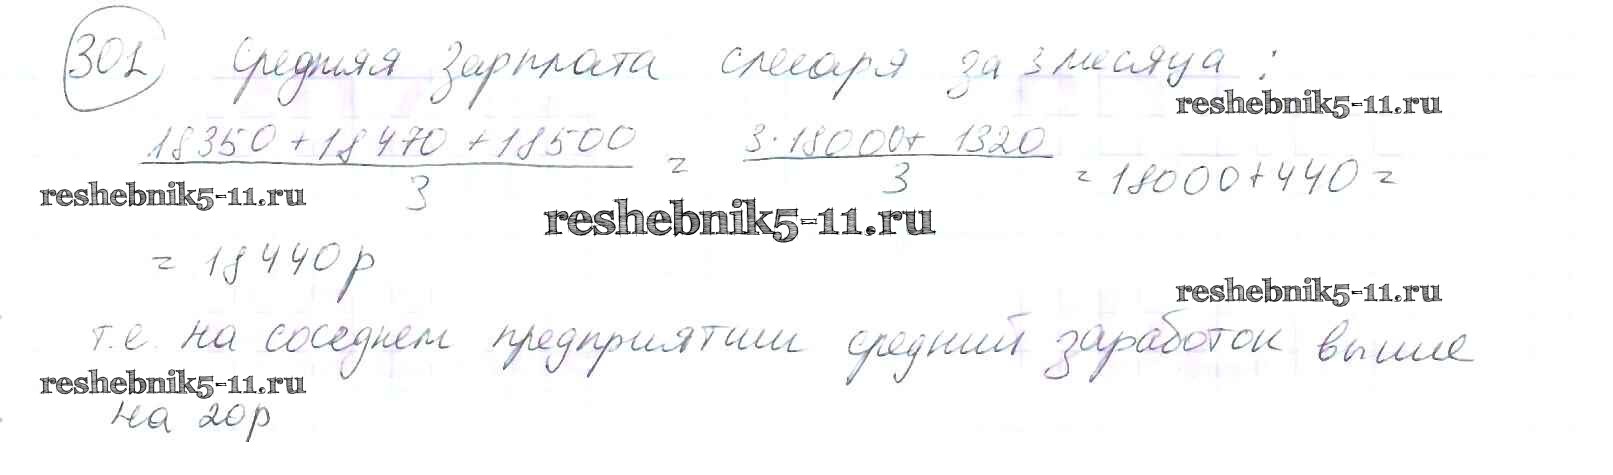 301 Средняя зарплата слесаря за 3 месяца :
reshebnik5-11.ru
18350 + 18470 + 18500 / 3 = 3·18000 + 1320 / 3 = 18000 + 440 =
reshebnik5-11.ru
reshebnik5-11.ru
= 18440 р
reshebnik5-11.ru
т.е. на соседнем предприятии средний заработок выше
reshebnik5-11.ru
на 20р